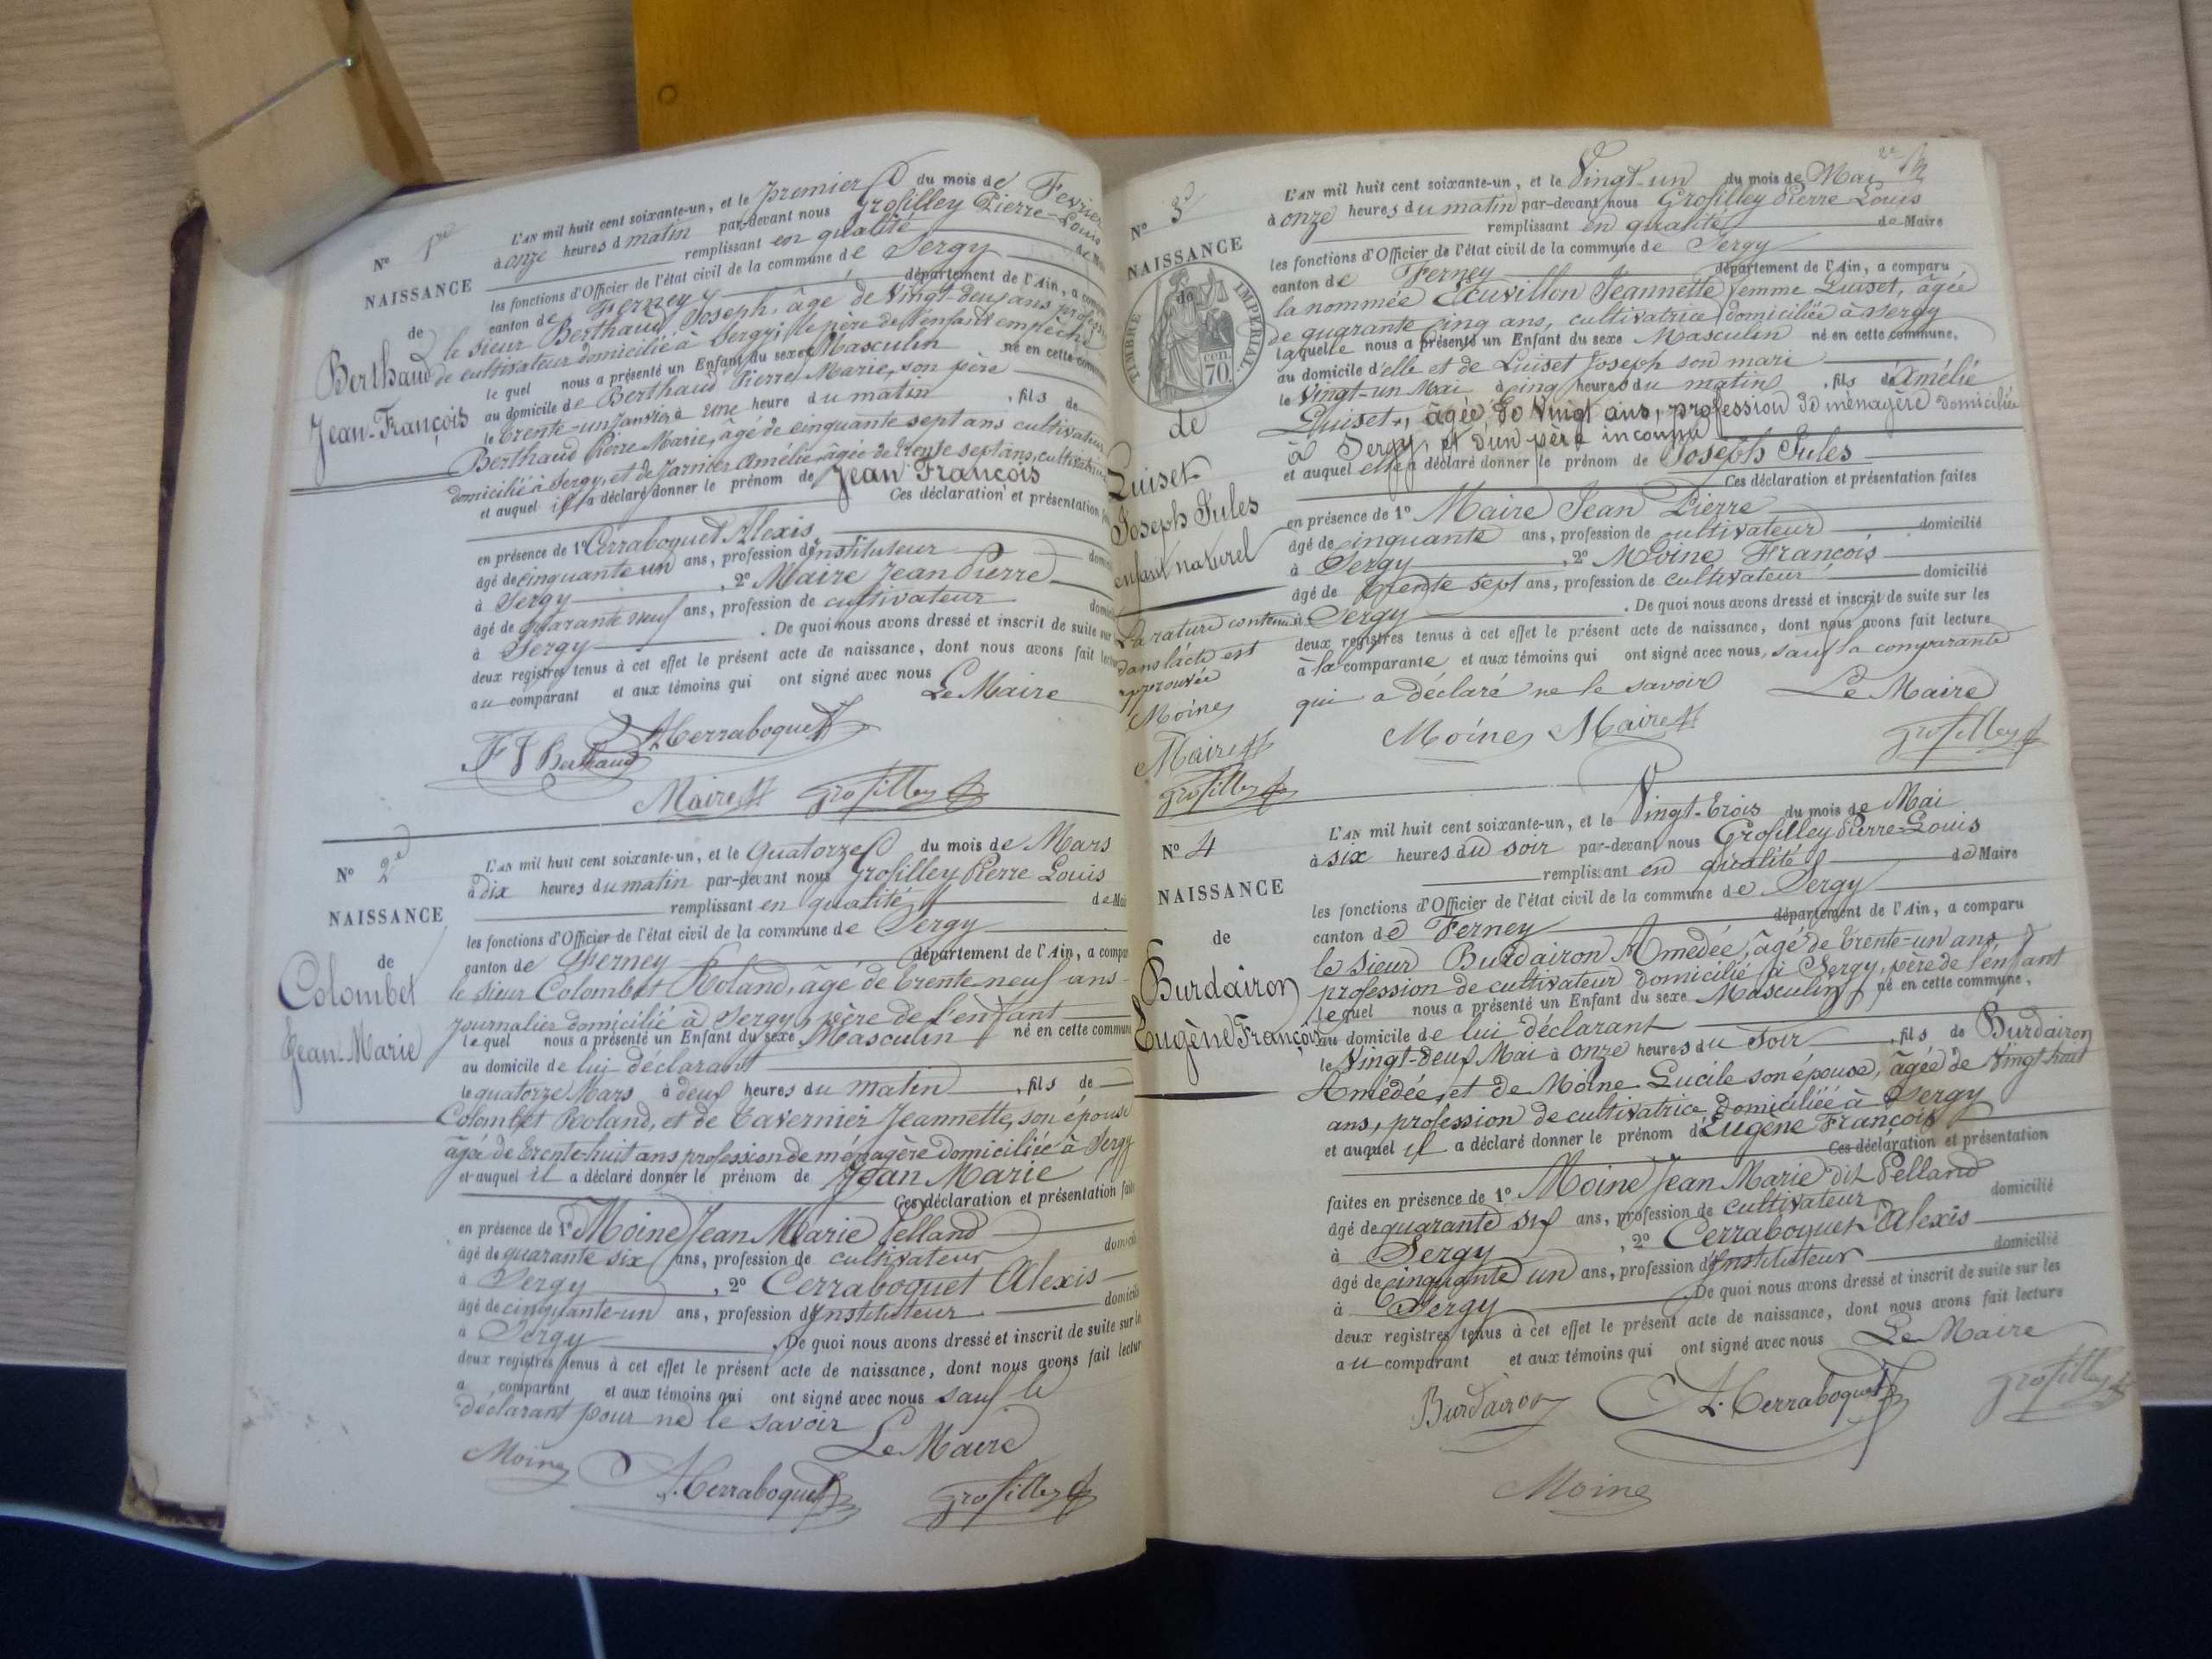 Nº 1re
NAISSANCE
de
Berthaud
Jean-François
L'AN mil huit cent soixante-un, et le Premier du mois de Fevrier
à onze heures d matin par-devant nous Grosilley Pierre-Louis
remplissant en qualité de Mai
les fonctions d'Officier de l'état civil de la commune de Sergy
canton de Ferney département de l'Ain, a comparu
le sieur Berthaud Joseph, âgé de vingt-deux ans profession
de cultivateur domicilié à Sergy, le père de l'enfant empêché
le quel nous a présenté un Enfant du sexe Masculin né en cette commune
au domicile de Berthaud Pierre Marie, son père
le trente-un Janvier à une heure du matin, fils de
Berthaud Pierre Marie, âgé de cinquante sept ans cultivateur
domicilié à Sergy, et de Jarnier Amélie, âgée de trente sept ans, cultivatrice
et auquel il a déclaré donner le prénom de Jean François
Ces déclaration et présentation
en présence de 1º Cerraboquet Alexis
âgé de cinquante un ans, profession d'instituteur domicilié
à Sergy, 2º Maire Jean Pierre
âgé de quarante neuf ans, profession de cultivateur domicilié
à Sergy. De quoi nous avons dressé et inscrit de suite sur
deux registres tenus à cet effet le présent acte de naissance, dont nous avons fait lecture
au comparant et aux témoins qui ont signé avec nous
Le Maire
FJ Berthaud A. Cerraboquet
Maire Grosilley
Nº 2e
NAISSANCE
de
Colombet
Jean-Marie
L'AN mil huit cent soixante-un, et le Quatorze du mois de Mars
à dix heures du matin par-devant nous Grosilley Pierre Louis
remplissant en qualité de Mai
les fonctions d'Officier de l'état civil de la commune de Sergy
canton de Ferney département de l'Ain, a compar
le sieur Colombet Roland, âgé de trente neuf ans
journalier domicilié à Sergy, père de l'enfant
lequel nous a présenté un Enfant du sexe Masculin né en cette commune
au domicile de lui déclarant
le quatorze Mars à deux heures du matin, fils de
Colombet Roland, et de Tavernier Jeannette, son épouse
âgée de trente-huit ans profession de ménagère domiciliée à Sergy
et auquel il a déclaré donner le prénom de Jean Marie
Ces déclaration et présentation faites
en présence de 1º Moine Jean Marie Pelland
âgé de quarante six ans, profession de cultivateur domicilié
à Sergy, 2º Cerraboquet Alexis
âgé de cinquante-un ans, profession d'Instituteur domicilié
à Sergy. De quoi nous avons dressé et inscrit de suite sur les
deux registres tenus à cet effet le présent acte de naissance, dont nous avons fait lectur
a comparant et aux témoins qui ont signé avec nous sauf le
déclarant pour ne le savoir
Le Maire
Moine A. Cerraboquet Grosilley
Nº 3e
NAISSANCE
de
TIMBRE IMPERIAL
70 cen.
de
Luiset
Joseph Jules
enfant naturel
La rature contenue
dans l'acte est
approuvée
Moine
Maire
Grosilley
L'AN mil huit cent soixante-un, et le Vingt-un du mois de Mai
à onze heures du matin par-devant nous Grosilley Pierre Louis
remplissant en qualité de Maire
les fonctions d'Officier de l'état civil de la commune de Sergy
canton de Ferney département de l'Ain, a comparu
la nommée Ecuvillon Jeannette femme Luiset, âgée
de quarante cinq ans, cultivatrice domiciliée à Sergy
laquelle nous a présenté un Enfant du sexe Masculin né en cette commune,
au domicile d'elle et de Luiset Joseph son mari
le Vingt-un Mai à cinq heures du matin, fils de Amélie
Luiset, âgée de vingt ans, profession de ménagère domiciliée
à Sergy, et d'un père inconnu
et auquel elle a déclaré donner le prénom de Joseph Jules
Ces déclaration et présentation faites
en présence de 1º Maire Jean Pierre
âgé de cinquante ans, profession de cultivateur domicilié
à Sergy, 2º Moine François
âgé de trente sept ans, profession de cultivateur domicilié
à Sergy. De quoi nous avons dressé et inscrit de suite sur les
deux registres tenus à cet effet le présent acte de naissance, dont nous avons fait lecture
à la comparante et aux témoins qui ont signé avec nous, sauf la comparante
qui a déclaré ne le savoir Le Maire
Moine Maire Grosilley
Nº 4
NAISSANCE
de
Burdairon
Eugène François
L'AN mil huit cent soixante-un, et le Vingt-trois du mois de Mai
à six heures du soir par-devant nous Grosilley Pierre-Louis
remplissant en qualité de Maire
les fonctions d'Officier de l'état civil de la commune de Sergy
canton de Ferney département de l'Ain, a comparu
le sieur Burdairon Amédée, âgé de trente-un ans,
profession de cultivateur domicilié à Sergy, père de l'enfant
lequel nous a présenté un Enfant du sexe Masculin, né en cette commune,
au domicile de lui déclarant
le Vingt-deux Mai à onze heures du soir, fils de Burdairon
Amédée, et de Moine Lucile son épouse, âgée de vingt huit
ans, profession de cultivatrice domiciliée à Sergy
et auquel il a déclaré donner le prénom d'Eugène François
Ces déclaration et présentation
faites en présence de 1º Moine Jean Marie dit Pelland
âgé de quarante six ans, profession de cultivateur domicilié
à Sergy, 2º Cerraboquet Alexis
âgé de cinquante un ans, profession d'Instituteur domicilié
à Sergy De quoi nous avons dressé et inscrit de suite sur les
deux registres tenus à cet effet le présent acte de naissance, dont nous avons fait lecture
au comparant et aux témoins qui ont signé avec nous Le Maire
Burdairon A. Cerraboquet Grosilley
Moine